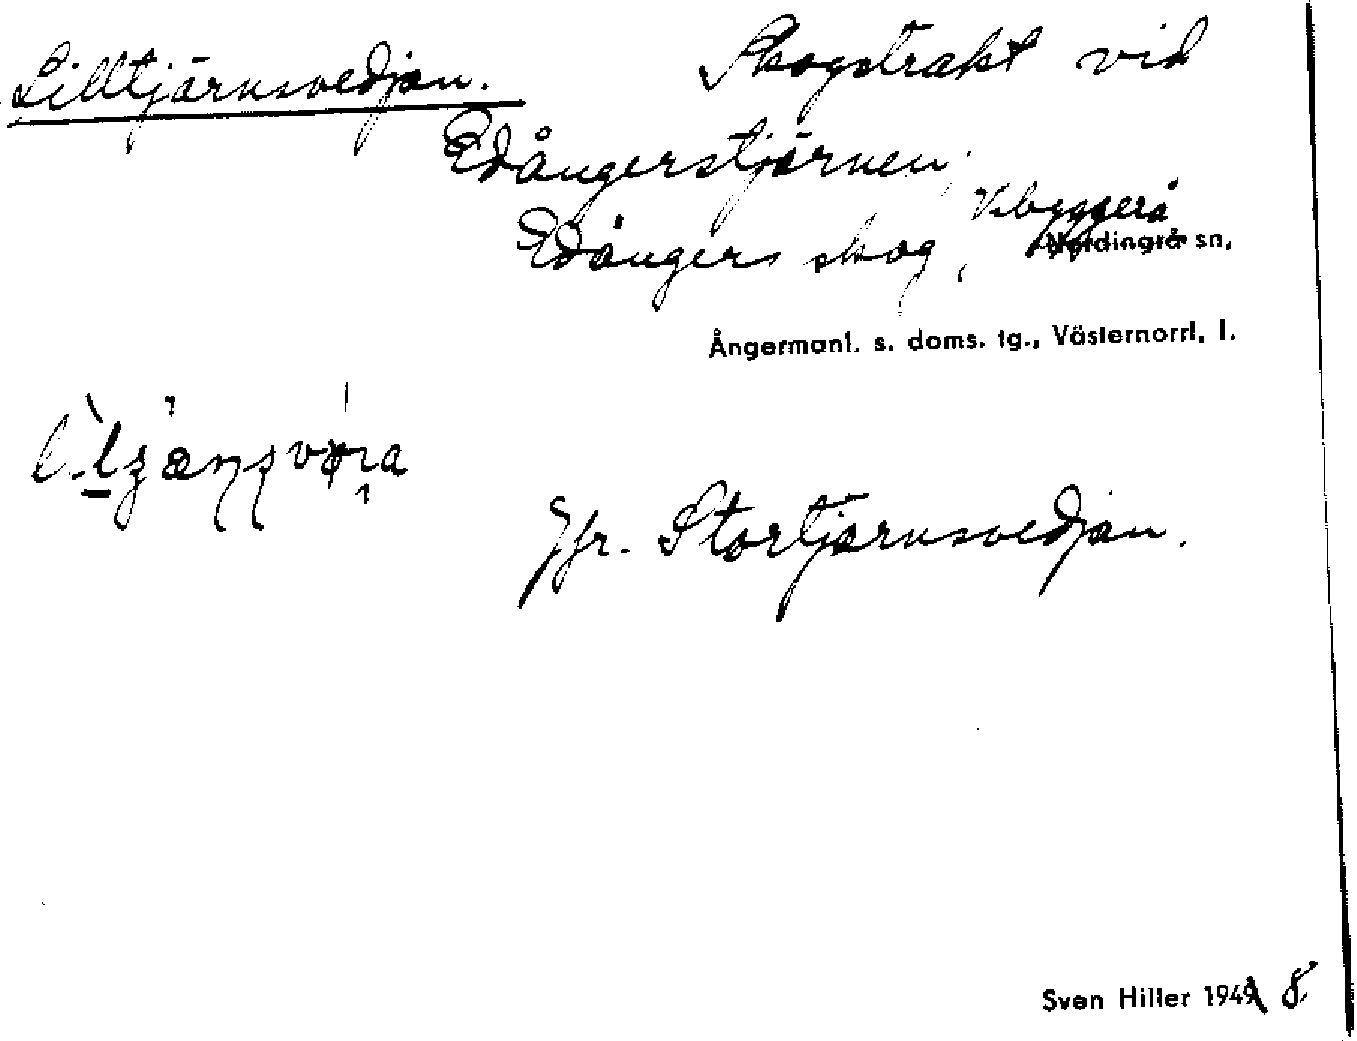 Lilltjärnsvedjan. Skogstrakt vid
Edångerstjärnen,
Edångers skog, Vibyggerå
Nordingrå sn,
Ångermanl. s. doms. tg., Västernorrl. l.
Jfr. Stortjärnsvedjan.
Sven Hiller 1949 8